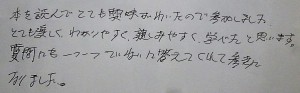 本を読んでとても興味がわいたので参加しました
とても楽しく、わかりやすく、親しみやすく、学べたと思います。
質問にも一つ一つていねいに答えてくれて参考に
なりました。